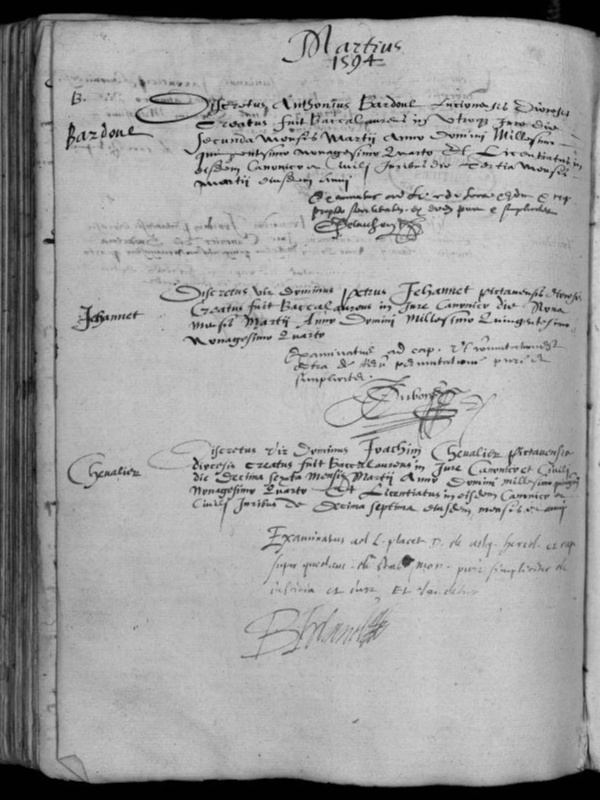 Martius
1594
B.
Bardoul
Discretus Anthonius Bardoul Lucionensis Diocesis
Creatus fuit Baccalaureus in Utroq Jure die
Secunda mensis Martii Anno Domini Millesimo
quingentesimo nonagesimo Quarto Et Licentiatus in
eisdem Canonico & Civilj Juribus die Tertia mensis
Martii eiusdem anni
Examinatus ad
pure & simpliciter
Jehannet
Discretus vir Dominus Petrus Jehannet pictavensis diocesis
Creatus fuit Baccalaureus in Jure Canonico die Nona
mensis Martij Anno Domini Millesimo Quingentesimo
Nonagesimo Quarto
Examinatus ad cap.
extra de permutatione pure &
simpliciter
Chevalier
Discretus Vir Dominus Joachim Chevalier Pictavensis
diocesis Creatus fuit Baccalaureus in Jure Canonico et Civili
die Decima sexta Mensis Martij Anno Domini millesimo
Nonagesimo Quarto Et Licentiatus in eisdem Canonico et
Civilj Juribus die Decima septima eiusdem mensis et anni
Examinatus ad L. placet D. de et cap
pure simpliciter de
et iure Et